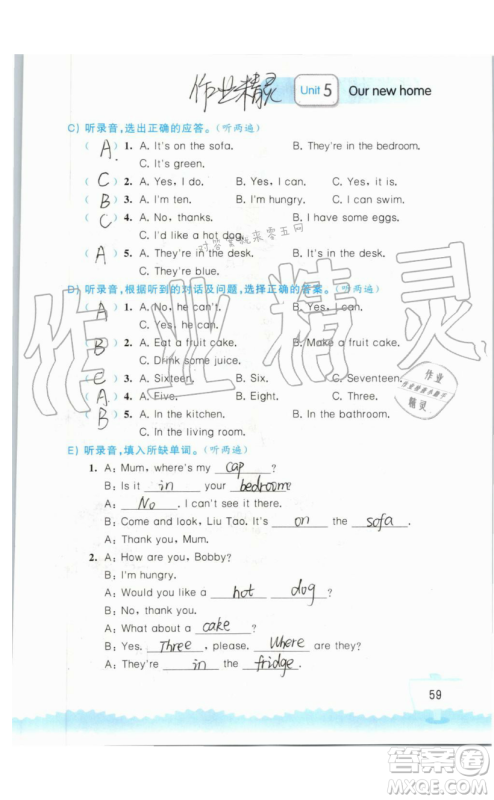 作业精灵 Unit 5 Our new home
C) 听录音,选出正确的应答。(听两遍)
( A ) 1. A. It's on the sofa. B. They're in the bedroom.
C. It's green.
( C ) 2. A. Yes, I do. B. Yes, I can. C. Yes, it is.
( B ) 3. A. I'm ten. B. I'm hungry. C. I'm cold.
( C ) 4. A. No, thanks. B. I have some eggs.
C. I'd like a hot dog.
对答案就来零五网
( A ) 5. A. They're in the desk. B. They're on the desk.
C. They're blue.
D) 听录音,根据听到的对话及问题,选择正确的答案。(听两遍)
( A ) 1. A. No, he can't. B. Yes, I can.
C. Yes, he can.
( B ) 2. A. Eat a fruit cake. B. Make a fruit cake.
C. Drink some juice.
( C ) 3. A. Sixteen. B. Six. C. Seventeen.
( A ) 4. A. Five. B. Eight. C. Three.
( B ) 5. A. In the kitchen. B. In the bathroom.
C. In the living room.
E) 听录音,填入所缺单词。(听两遍)
1. A: Mum, where's my cap ?
B: Is it in your bedroome ?
A: No . I can't see it there.
B: Come and look, Liu Tao. It's on the sofa .
A: Thank you, Mum.
2. A: How are you, Bobby?
B: I'm hungry.
A: Would you like a hot dog ?
A: What about a cake ?
B: Yes. Three , please. Where are they?
A: They're in the fridge .
59
作业精灵
作业
精灵
答案圈
MXQE.COM